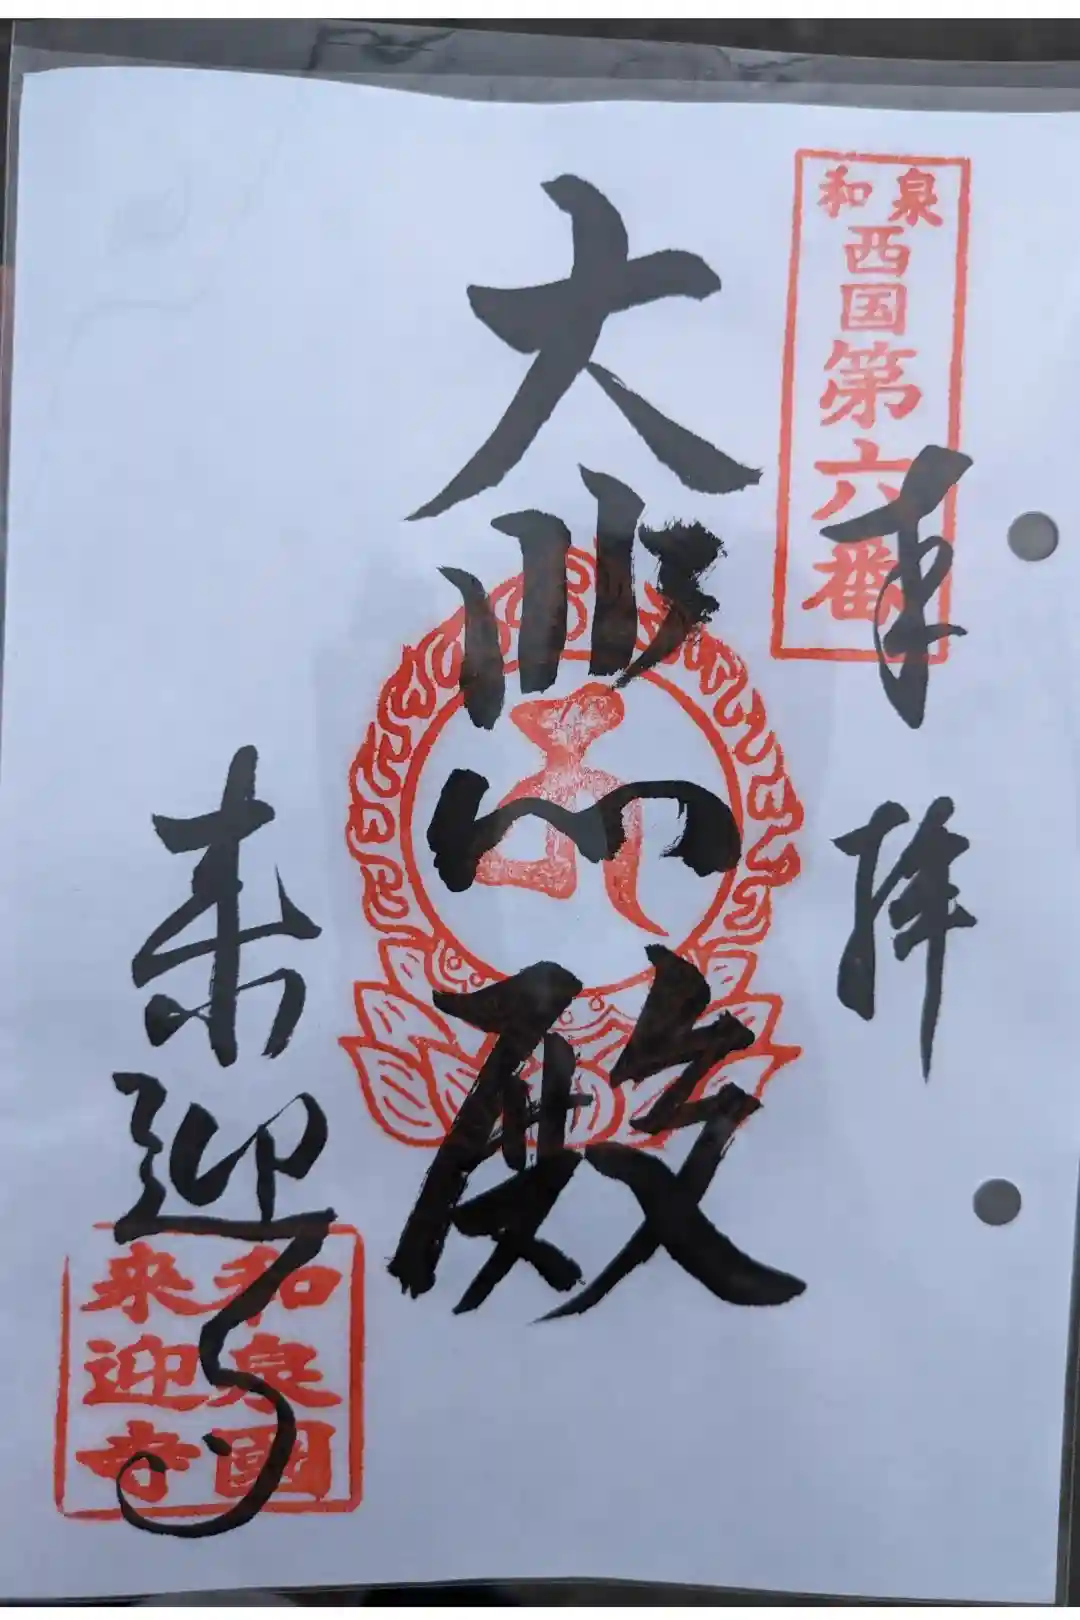 和泉
西国第六番
奉拝
大悲殿
来迎寺
和泉国
来迎寺